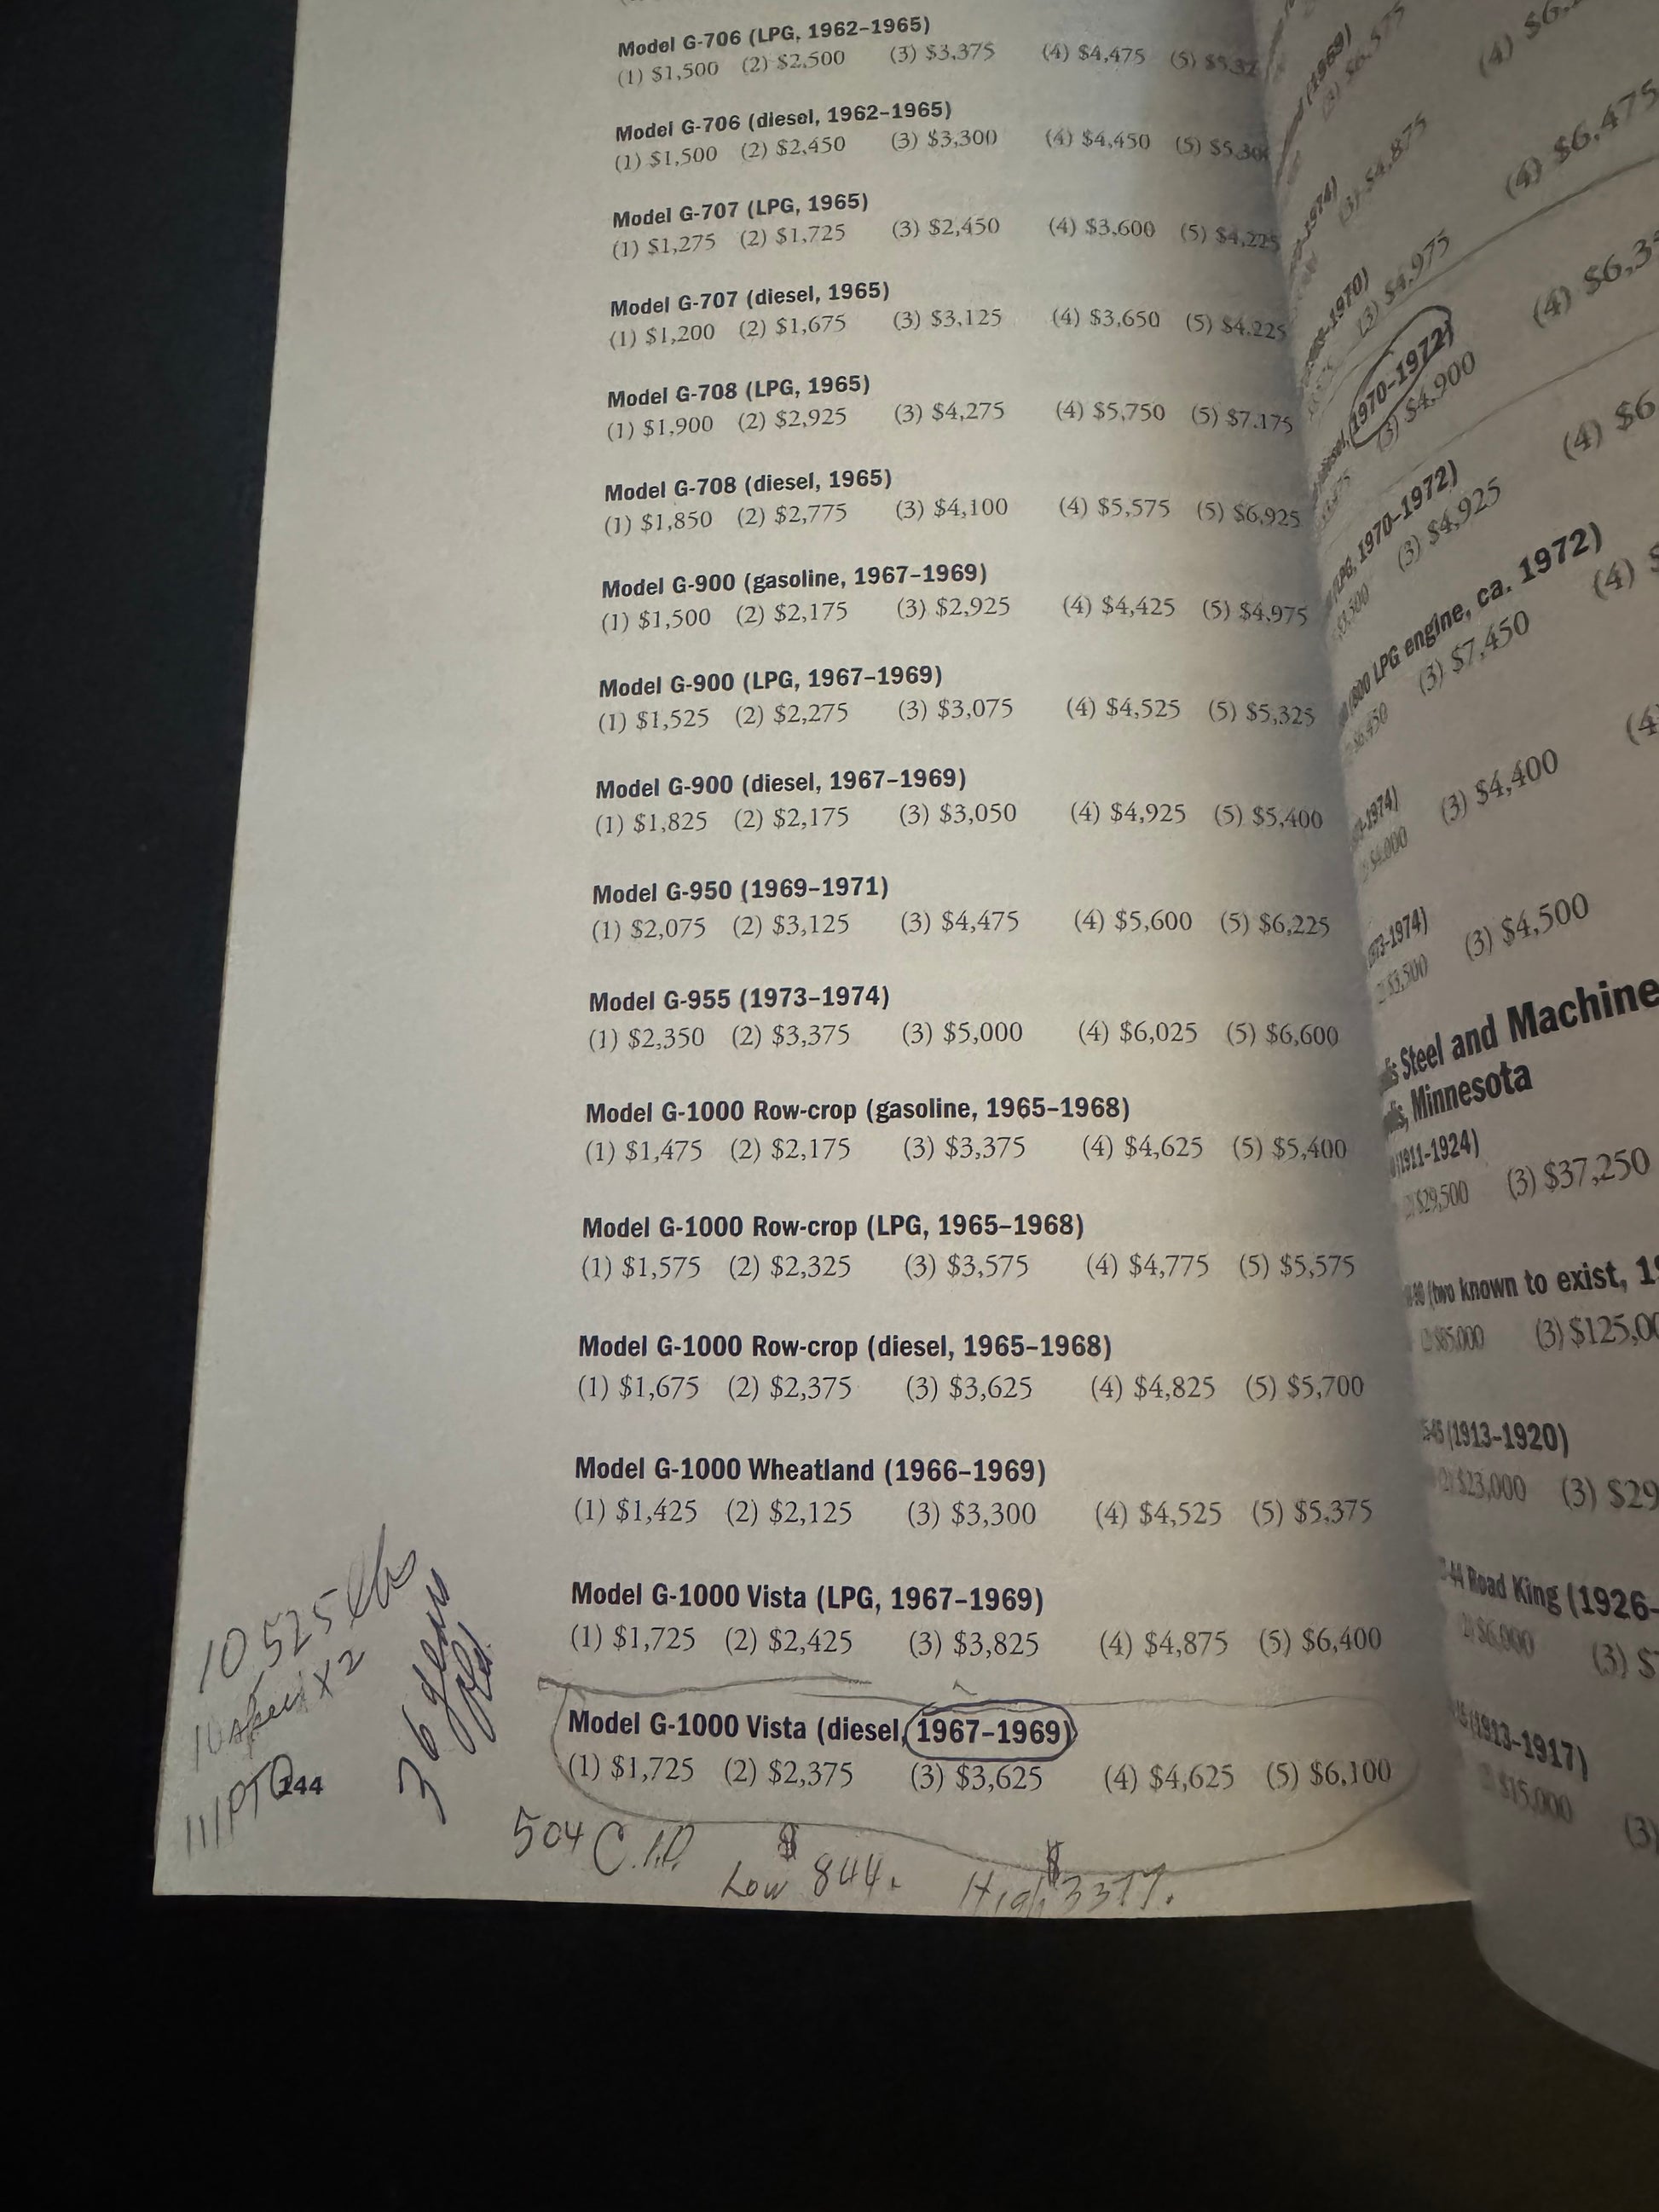 Model G-706 (LPG, 1962–1965)
(1) $1,500 (2) $2,500 (3) $3,375 (4) $4,475 (5)
Model G-706 (diesel, 1962–1965)
(1) $1,500 (2) $2,450 (3) $3,300 (4) $4,450 (5)
Model G-707 (LPG, 1965)
(1) $1,275 (2) $1,725 (3) $2,450 (4) $3,600 (5) $4,225
Model G-707 (diesel, 1965)
(1) $1,200 (2) $1,675 (3) $3,125 (4) $3,650 (5) $4,225
Model G-708 (LPG, 1965)
(1) $1,900 (2) $2,925 (3) $4,275 (4) $5,750 (5) $7,175
Model G-708 (diesel, 1965)
(1) $1,850 (2) $2,775 (3) $4,100 (4) $5,575 (5) $6,925
Model G-900 (gasoline, 1967–1969)
(1) $1,500 (2) $2,175 (3) $2,925 (4) $4,425 (5) $4,975
Model G-900 (LPG, 1967–1969)
(1) $1,525 (2) $2,275 (3) $3,075 (4) $4,525 (5) $5,325
Model G-900 (diesel, 1967–1969)
(1) $1,825 (2) $2,175 (3) $3,050 (4) $4,925 (5) $5,400
Model G-950 (1969–1971)
(1) $2,075 (2) $3,125 (3) $4,475 (4) $5,600 (5) $6,225
Model G-955 (1973–1974)
(1) $2,350 (2) $3,375 (3) $5,000 (4) $6,025 (5) $6,600
Model G-1000 Row-crop (gasoline, 1965–1968)
(1) $1,475 (2) $2,175 (3) $3,375 (4) $4,625 (5) $5,400
Model G-1000 Row-crop (LPG, 1965–1968)
(1) $1,575 (2) $2,325 (3) $3,575 (4) $4,775 (5) $5,575
Model G-1000 Row-crop (diesel, 1965–1968)
(1) $1,675 (2) $2,375 (3) $3,625 (4) $4,825 (5) $5,700
Model G-1000 Wheatland (1966–1969)
(1) $1,425 (2) $2,125 (3) $3,300 (4) $4,525 (5) $5,375
Model G-1000 Vista (LPG, 1967–1969)
(1) $1,725 (2) $2,425 (3) $3,825 (4) $4,875 (5) $6,400
Model G-1000 Vista (diesel, 1967–1969)
(1) $1,725 (2) $2,375 (3) $3,625 (4) $4,625 (5) $6,100
10,525 lbs
X 2
111 PTO
36
144
504 C.I.D.
Low $844. High $
(3) $4,875 (4) $6,475
(3) $4,975
1970–1972)
(3) $4,900
LPG, 1970–1972)
(3) $4,925
LPG engine, ca. 1972)
(3) $7,450
(3) $4,400
(3) $4,500
Steel and Machine
Minnesota
(1911–1924)
$29,500 (3) $37,250
(two known to exist,
$85,000
(1913–1920)
$23,000
Road King (1926–
(1913–1917)
$15,000